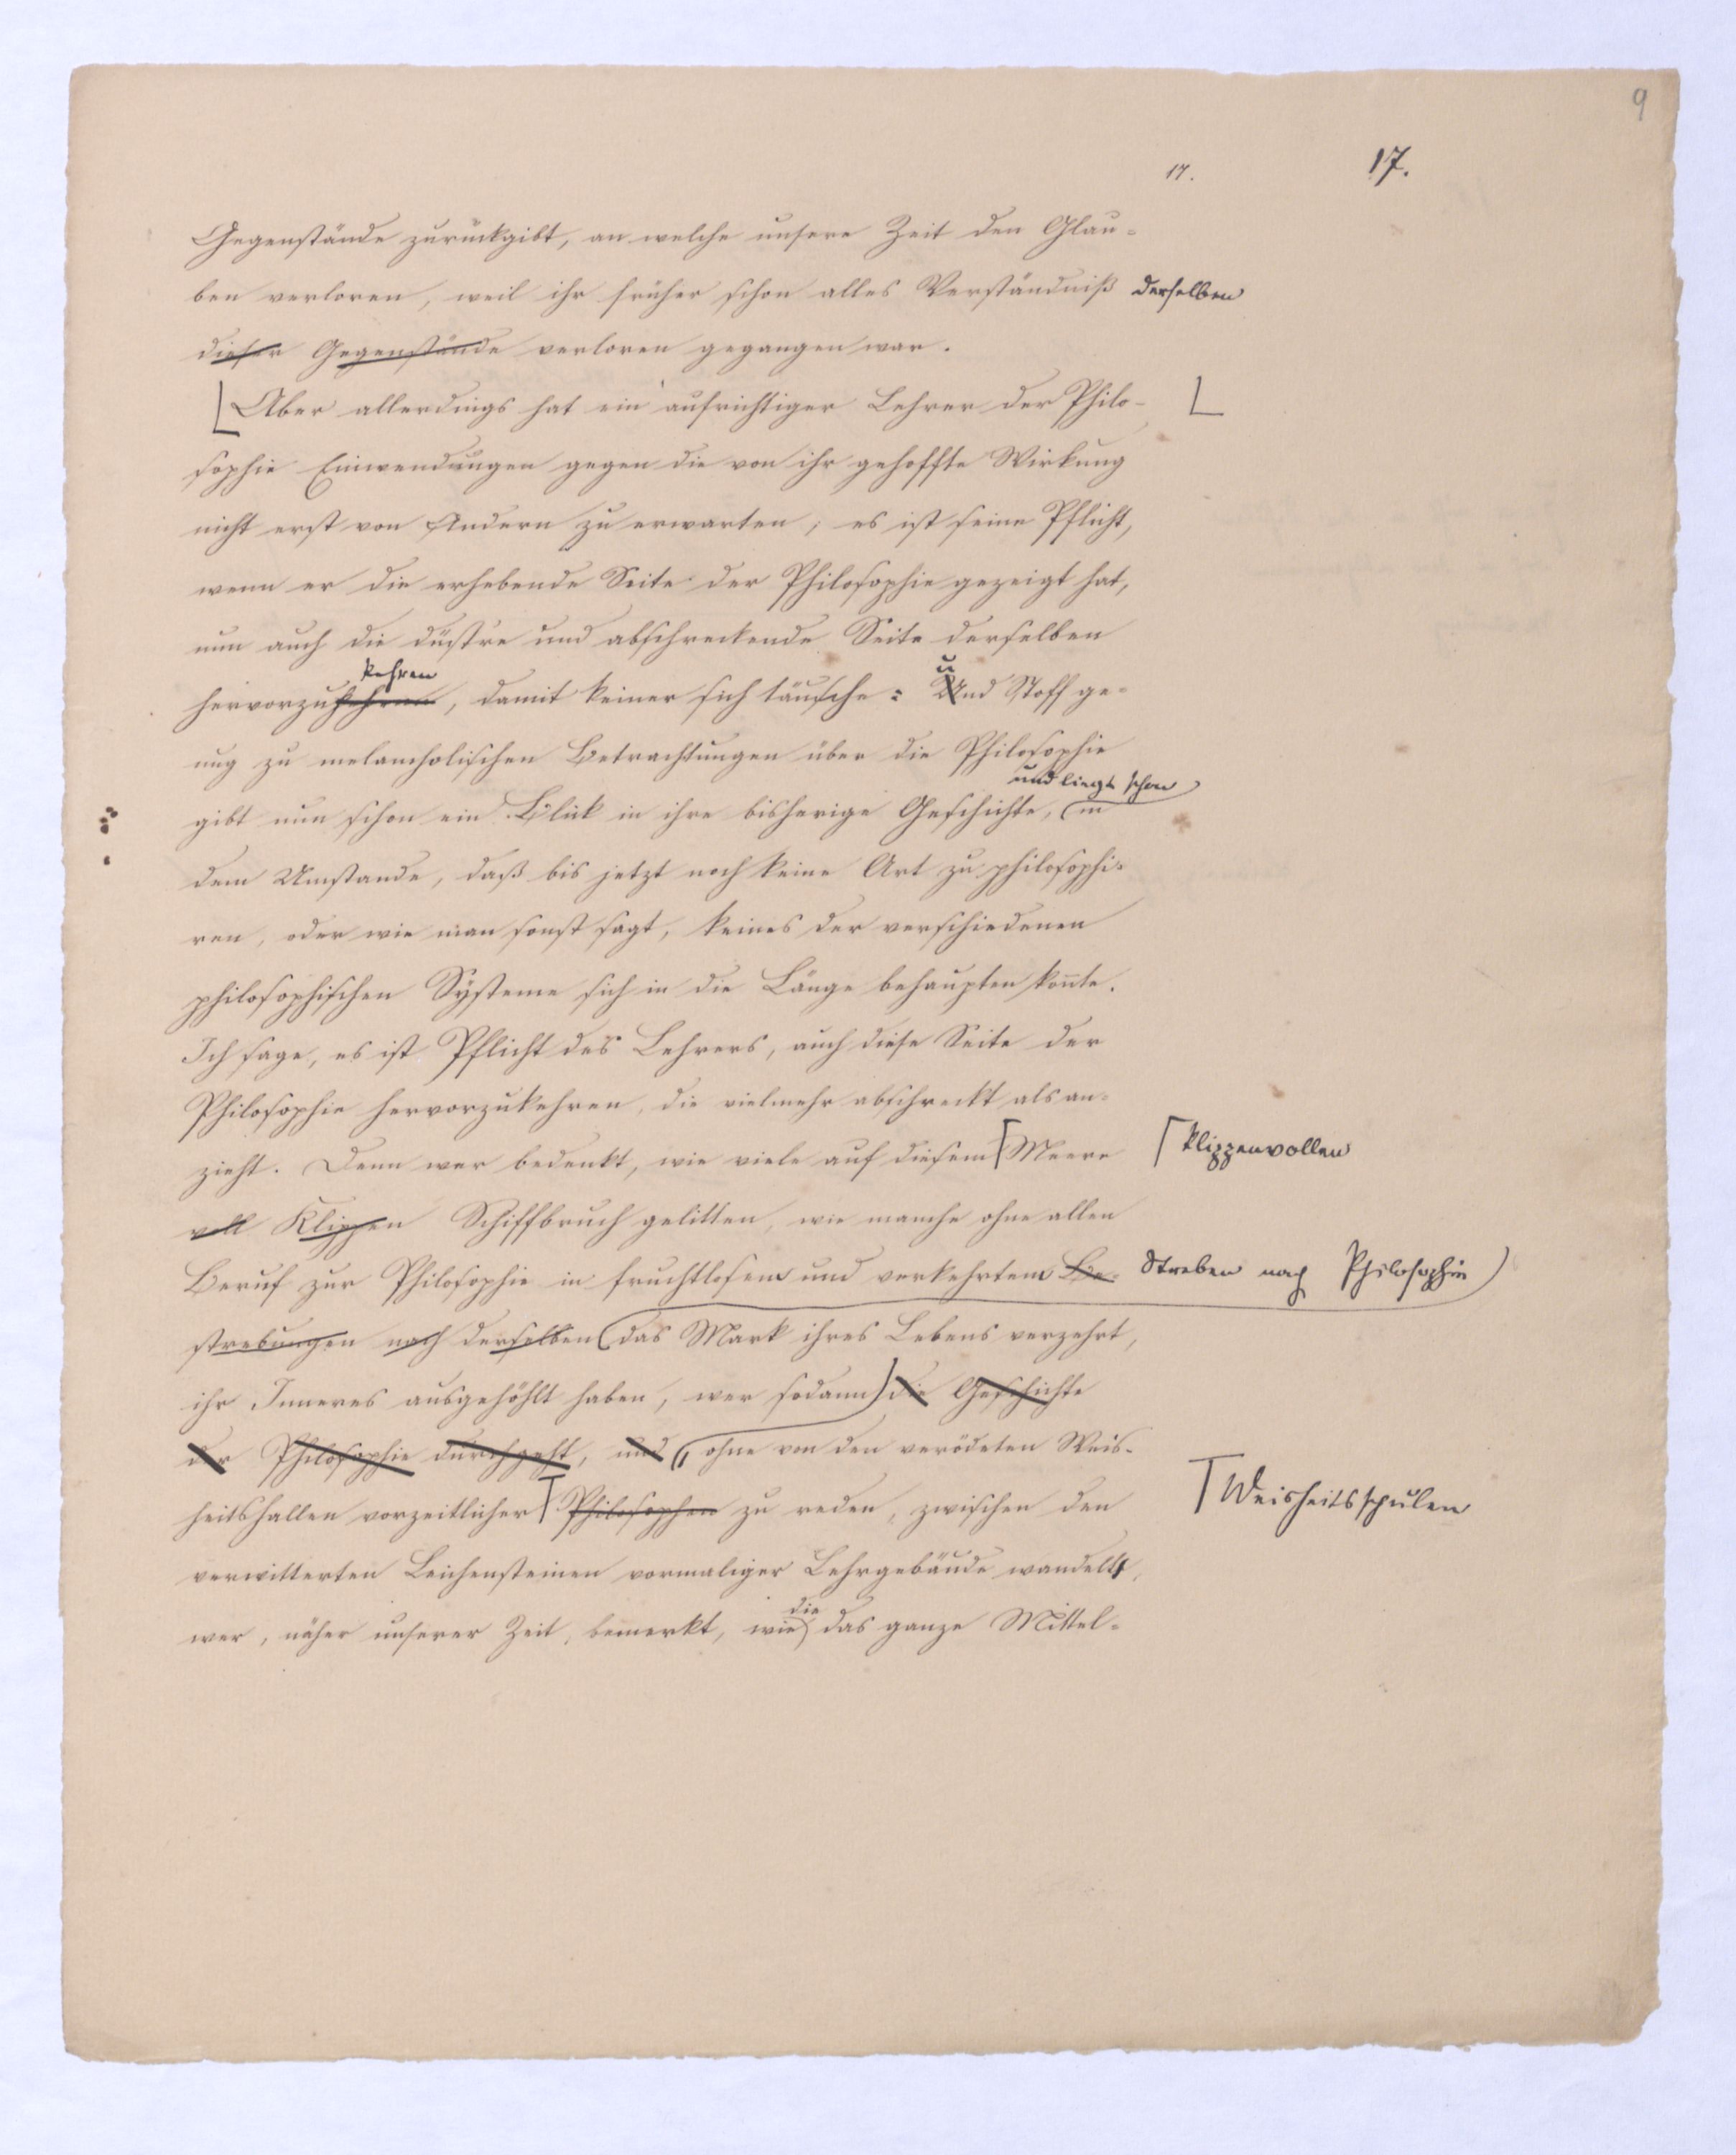 9
17. 17.
Gegenstände zurückgibt, an welche unsere Zeit den Glau-
ben verloren, weil ihr früher schon alles Verständniß derselben
dieser Gegenstände verloren gegangen war.
Aber allerdings hat ein aufrichtiger Lehrer der Philo-
sophie Einwendungen gegen die von ihr gehoffte Wirkung
nicht erst von Andern zu erwarten; es ist seine Pflicht,
wenn er die erhebende Seite der Philosophie gezeigt hat,
nun auch die düstre und abschreckende Seite derselben
kehren u
hervorzukehren, damit keiner sich täusche: Und Stoff ge-
nug zu melancholischen Betrachtungen über die Philosophie
und liegt schon
gibt nun schon ein Blick in ihre bisherige Geschichte, in
dem Umstande, daß bis jetzt noch keine Art zu philosophi-
ren, oder wie man sonst sagt, keines der verschiedenen
philosophischen Systeme sich in die Länge behaupten kon̅te.
Ich sage, es ist Pflicht des Lehrers, auch diese Seite der
Philosophie hervorzukehren, die vielmehr abschreckt als an-
zieht. Denn wer bedenkt, wie viele auf diesem Meere klippenvollen
voll Klippen Schiffbruch gelitten, wie manche ohne allen
Beruf zur Philosophie in fruchtlosem und verkehrtem Be- Streben nach Philosophie
strebungen nach derselben das Mark ihres Lebens verzehrt,
ihr Inneres ausgehöhlt haben, wer sodann die Geschichte
der Philosophie durchgeht, und, ohne von den verödeten Weis-
heitshallen vorzeitlicher Philosophen zu reden, zwischen den Weisheitsschulen
verwitterten Leichensteinen vormaliger Lehrgebäude wandelt,
die
wer, näher unserer Zeit, bemerkt, wie das ganze Mittel-